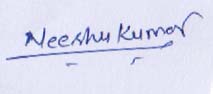 Neeshu Kumar